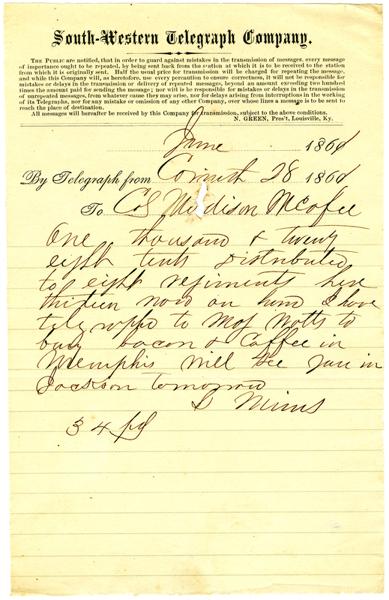 South-Western Telegraph Company.
THE PUBLIC are notified, that in order to guard against mistakes in the transmission of messages, every message
of importance ought to be repeated, by being sent back from the station at which it is to be received to the station
from which it is originally sent. Half the usual price for transmission will be charged for repeating the message,
and while this Company will, as heretofore, use every precaution to ensure correctness, it will not be responsible for
mistakes or delays in the transmission or delivery of repeated messages, beyond an amount exceeding two hundred
times the amount paid for sending the message; nor will it be responsible for mistakes or delays in the transmission
of unrepeated messages, from whatever cause they may arise, nor for delays arising from interruptions in the working
of its Telegraphs, nor for any mistake or omission of any other Company, over whose lines a message is to be sent to
reach the place of destination.
All messages will hereafter be received by this Company for transmission, subject to the above conditions.
N. GREEN, Pres't, Louisville, Ky.
June 1861
By Telegraph from Corinth 28 1861
To Col Madison McAfee
One thousand & twenty
eight tents distributed
to eight regiments here
thirteen now on hand I have
telegraphed to Maj Watts to
buy bacon & Coffee in
Memphis will see you in
Jackson tomorrow
L Mims
34 pd